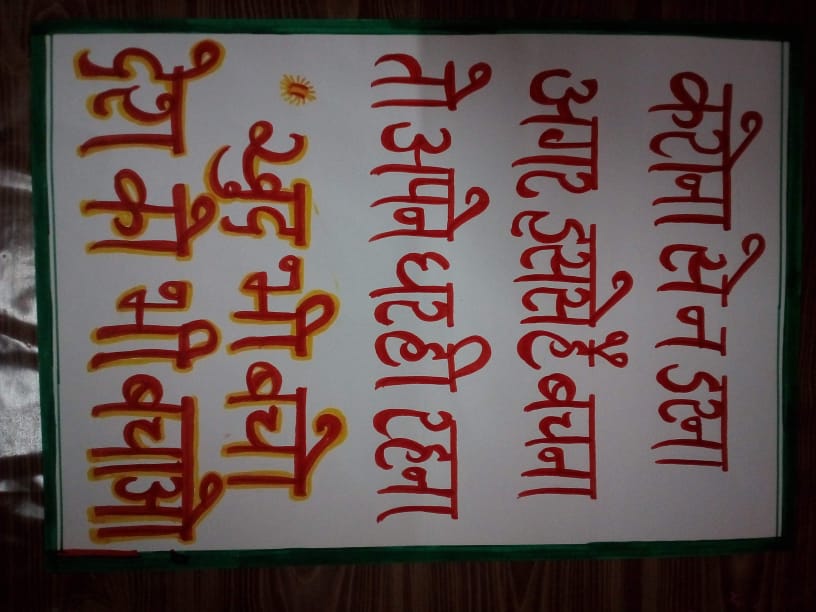 करोना से न डरना
अगर इससे हैं बचना
तो अपने घर ही रहना
खुद भी बचो
देश को भी बचाओ